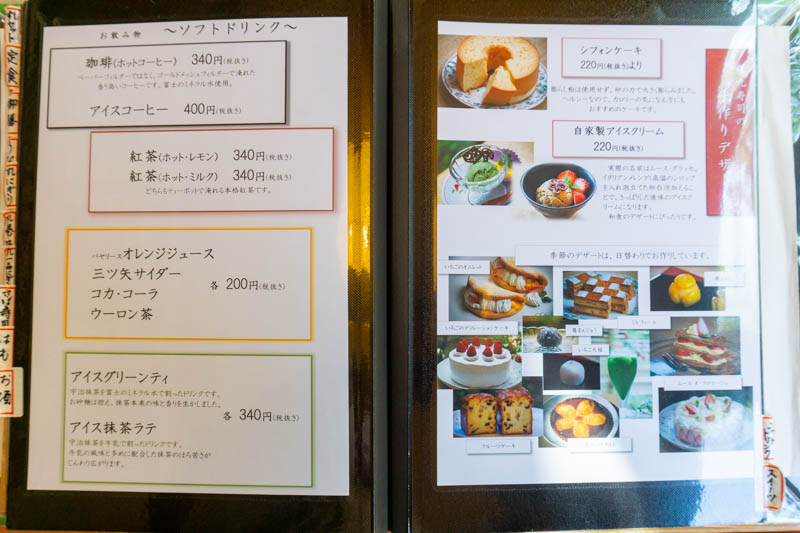 お飲み物 ～ソフトドリンク～
珈琲(ホットコーヒー) 340円(税抜き)
ペーパーフィルターではなく、ゴールドメッシュフィルターで淹れた
香り高いコーヒーです。富士のミネラル水使用。
アイスコーヒー 400円(税抜き)
紅茶(ホット・レモン) 340円(税抜き)
紅茶(ホット・ミルク) 340円(税抜き)
どちらもティーポットで淹れる本格紅茶です。
バヤリースオレンジジュース
三ツ矢サイダー
コカ・コーラ
ウーロン茶
各 200円(税抜き)
アイスグリーンティ
宇治抹茶を富士のミネラル水で割ったドリンクです。
お砂糖は控え、抹茶本来の味と香りを生かしました。
アイス抹茶ラテ
宇治抹茶を牛乳で割ったドリンクです。
牛乳の風味と多めに配合した抹茶のほろ苦さが
じんわり広がります。
各 340円(税抜き)
シフォンケーキ
220円(税抜き)より
膨らし粉は使用せず、卵の力で大きく膨らみました。
ヘルシーなので、カロリーの気になる方にも
おすすめのケーキです。
自家製アイスクリーム
220円(税抜き)
実際の名前はムース・グラッセ。
イタリアンメレンゲ(高温のシロップ
を入れ泡立てた卵白)を加えるこ
とで、さっぱりした後味のアイスク
リームになります。
和食のデザートにぴったりです。
寿司の
手作りデザ
季節のデザートは、日替わりでお作りしています。
いちごのオムレット
いちごのデコレーションケーキ
葛まんじゅう
ミルフィーユ
いちご大福
フルーツケーキ
定食
お酒
はも
スイーツ